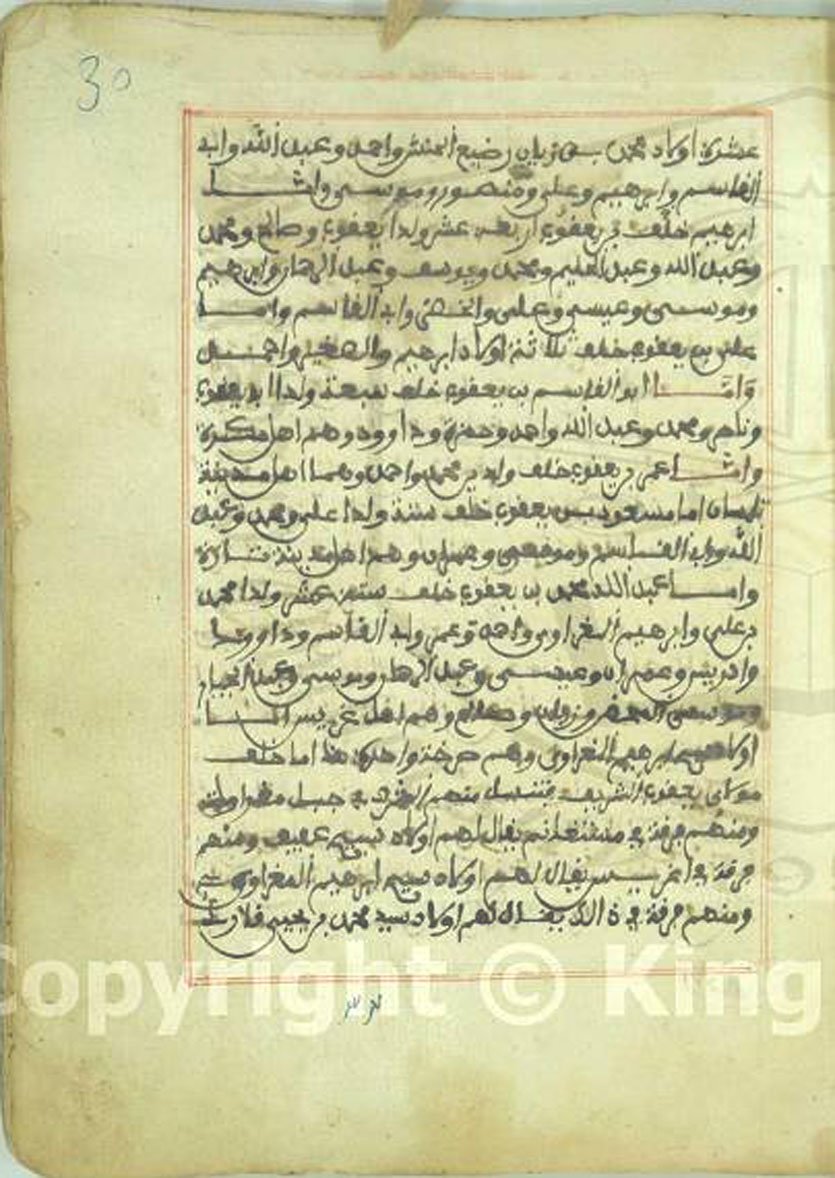 30
عشرة اولاد محمد بن زيان رضيع العنش واحمد وعبد الله وابو
القاسم وابرهيم وعلي ومنصور وموسى واما
ابرهيم خلف بن يعقوب اربعة عشر ولدا يعقوب وصالح ومحمد
وعبد الله وعبد العليم ومحمد ويوسف وعبد الرحمان وابرهيم
وموسى وعيسى وعلي وابو القاسم واما
علي بن يعقوب خلف ثلاثة اولاد ابرهيم والصغير واحمد
واما ابو القاسم بن يعقوب خلف سبعة ولدا ابو يعقوب
وناصر ومحمد وعبد الله واحمد وحمزة وداوود وهم اهل
واما عمر بن يعقوب خلف ولدين محمد واحمد وهما اهل مدينة
تلمسان اما مسعود بن يعقوب خلف ستة ولدا علي ومحمد وعبد
الله وابو القاسم وموسى وعمران وهم اهل مدينة تازة
واما عبد الله محمد بن يعقوب خلف ستة عشر ولدا محمد
بن علي وابرهيم المغراوي واحمد وعمر وابو القاسم وداوود
وادريس وعمران وعيسى وعبد الرحمان وموسى وعبد الجبار
وموسى وزيان وصالح وهم اهل غريس
اولاد ابرهيم المغراوي وهم فرقة واحدة هذا اما خلف
مولاي يعقوب الشريف منهم في جبل مغراوات
ومنهم فرقة في مستغانم يقال لهم اولاد سيدي عفيف ومنهم
فرقة في اغريس يقال لهم اولاد سيدي ابرهيم المغراوي
ومنهم فرقة في يقال لهم اولاد سيدي محمد بن يحيى
Copyright © King